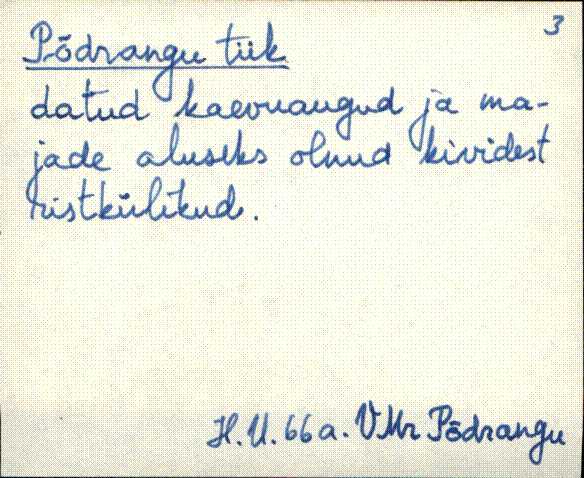 3
Põdrangu tiik
datud kaevuaugud ja ma-
jade aluseks olnud kividest
ristkülikud.
H. U. 66 a. VMr Põdrangu